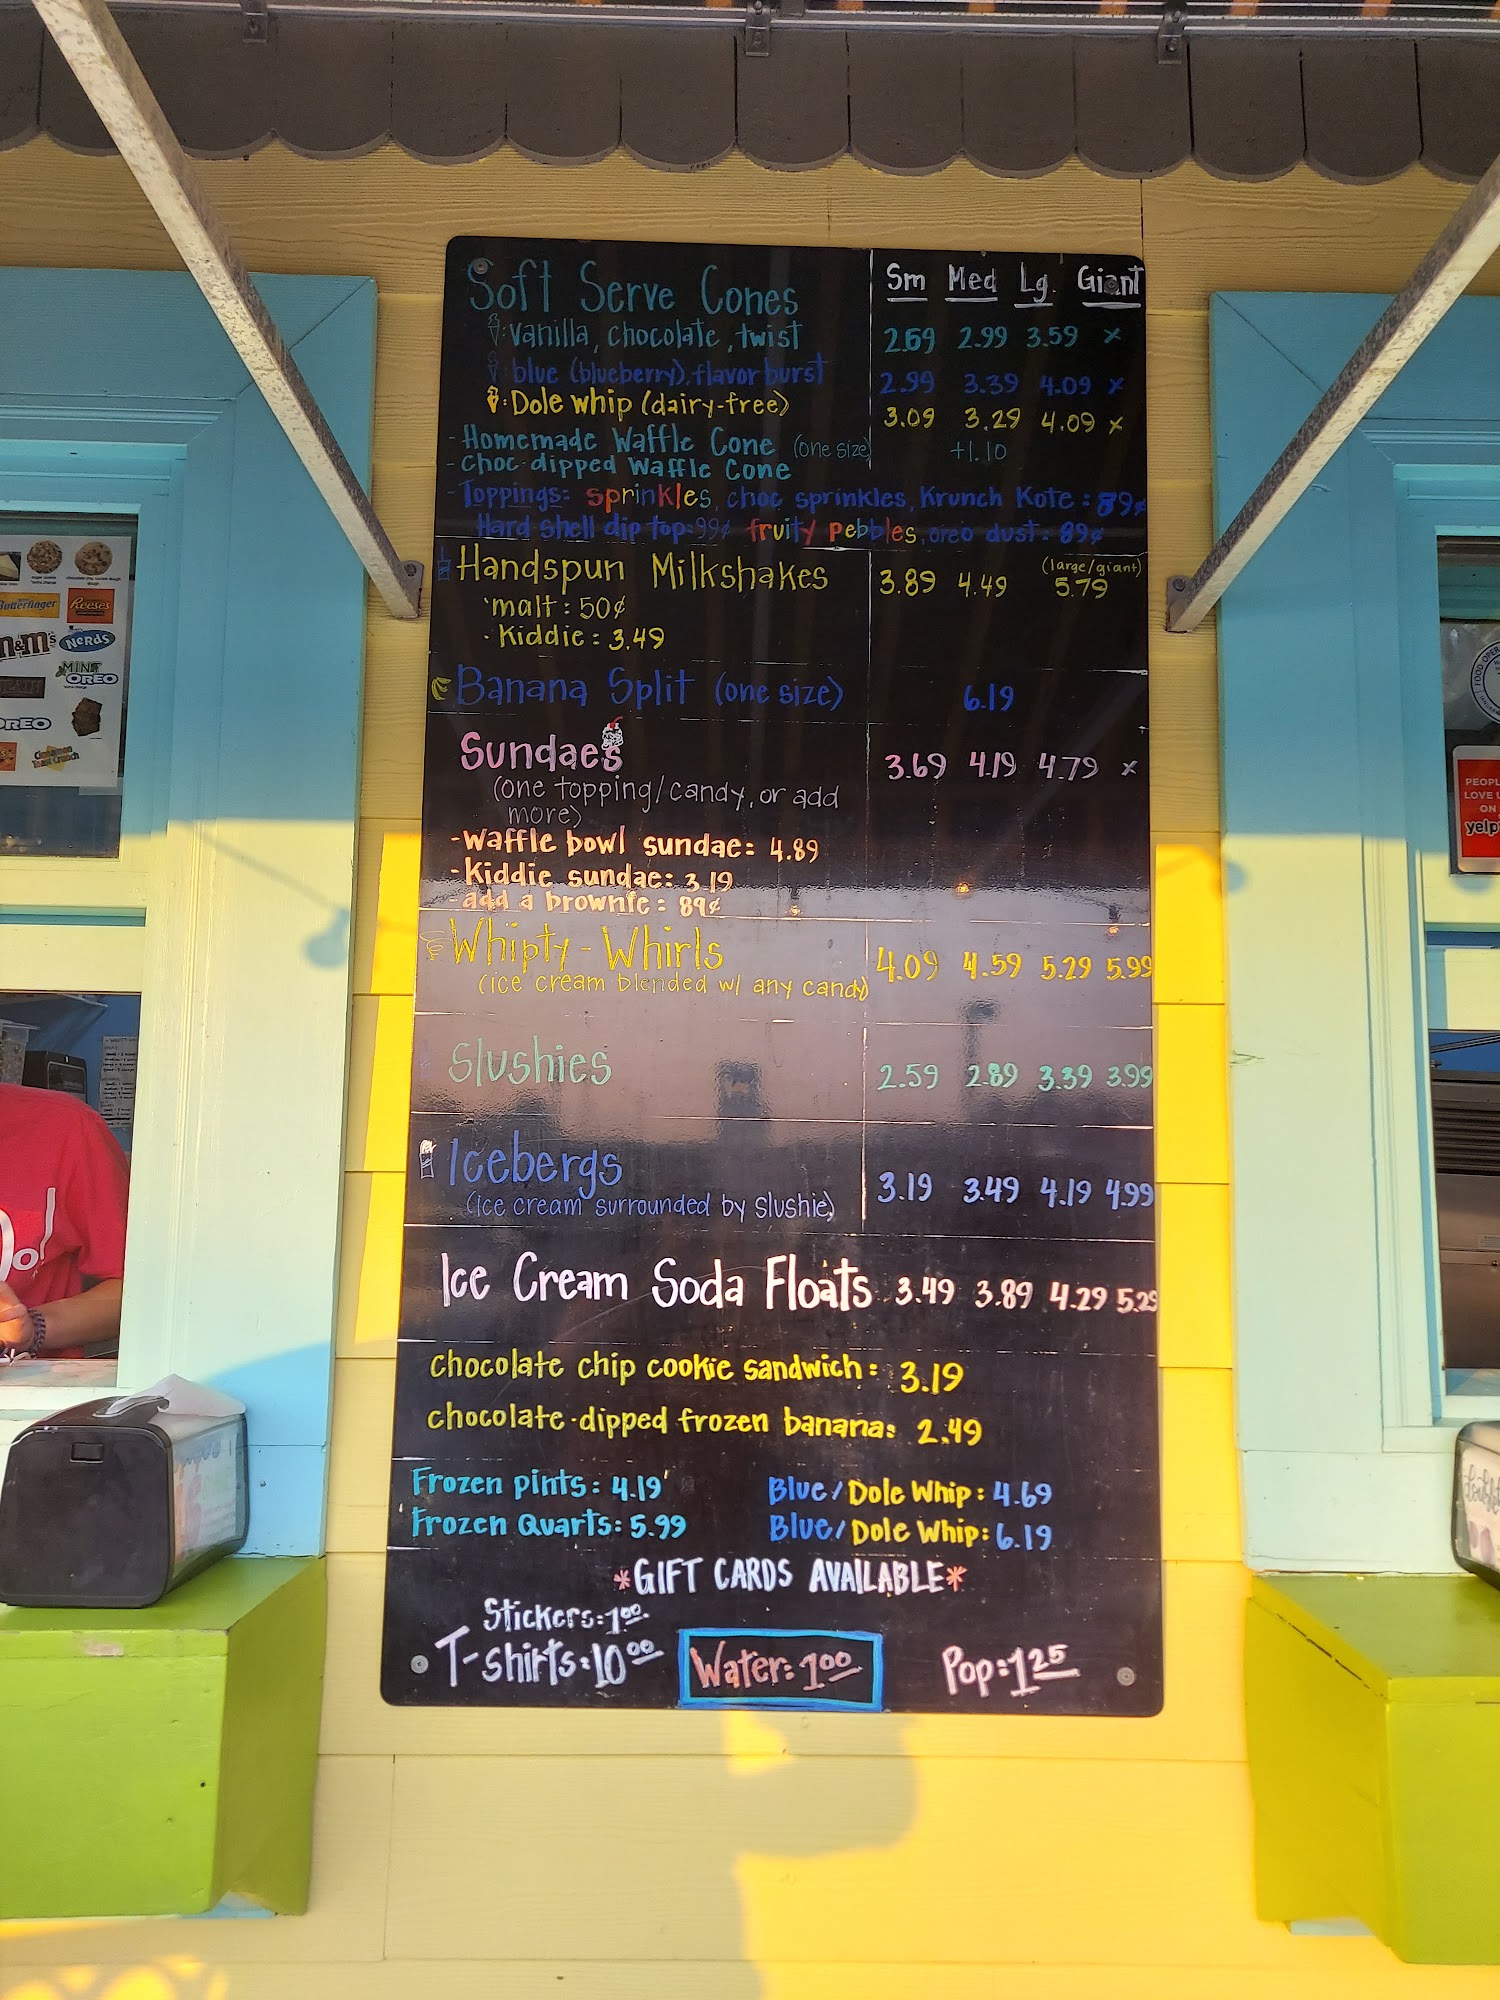 Soft Serve Cones Sm Med Lg. Giant
vanilla, chocolate, twist 2.69 2.99 3.59 x
blue (blueberry), flavor burst 2.99 3.39 4.09 x
Dole whip (dairy-free) 3.09 3.29 4.09 x
- Homemade Waffle Cone (one size) +1.10
- Choc-dipped Waffle Cone
- Toppings: sprinkles, choc sprinkles, Krunch Kote: 89¢
Hard shell dip top: 99¢ fruity pebbles, oreo dust: 89¢
Handspun Milkshakes 3.89 4.49 (large/giant) 5.79
malt: 50¢
· Kiddie: 3.49
Banana Split (one size) 6.19
Sundaes 3.69 4.19 4.79 x
(one topping/candy, or add
more)
- Waffle bowl sundae: 4.89
- Kiddie sundae: 3.19
- add a brownie: 89¢
Whipty-Whirls 4.09 4.59 5.29 5.99
(ice cream blended w/ any candy)
Slushies 2.59 2.89 3.39 3.99
Icebergs 3.19 3.49 4.19 4.99
(ice cream surrounded by slushie)
Ice Cream Soda Floats 3.49 3.89 4.29 5.29
chocolate chip cookie sandwich: 3.19
chocolate-dipped frozen banana: 2.49
Frozen pints: 4.19 Blue/Dole Whip: 4.69
Frozen Quarts: 5.99 Blue/Dole Whip: 6.19
*GIFT CARDS AVAILABLE*
Stickers: 1.00
T-shirts: 10.00 Water: 1.00 Pop: 1.25
Butterfinger
Reese's
m&m's
Nerds
MINT
OREO
OREO
Cinnamon
Toast Crunch
PEOPL
LOVE U
ON
yelp